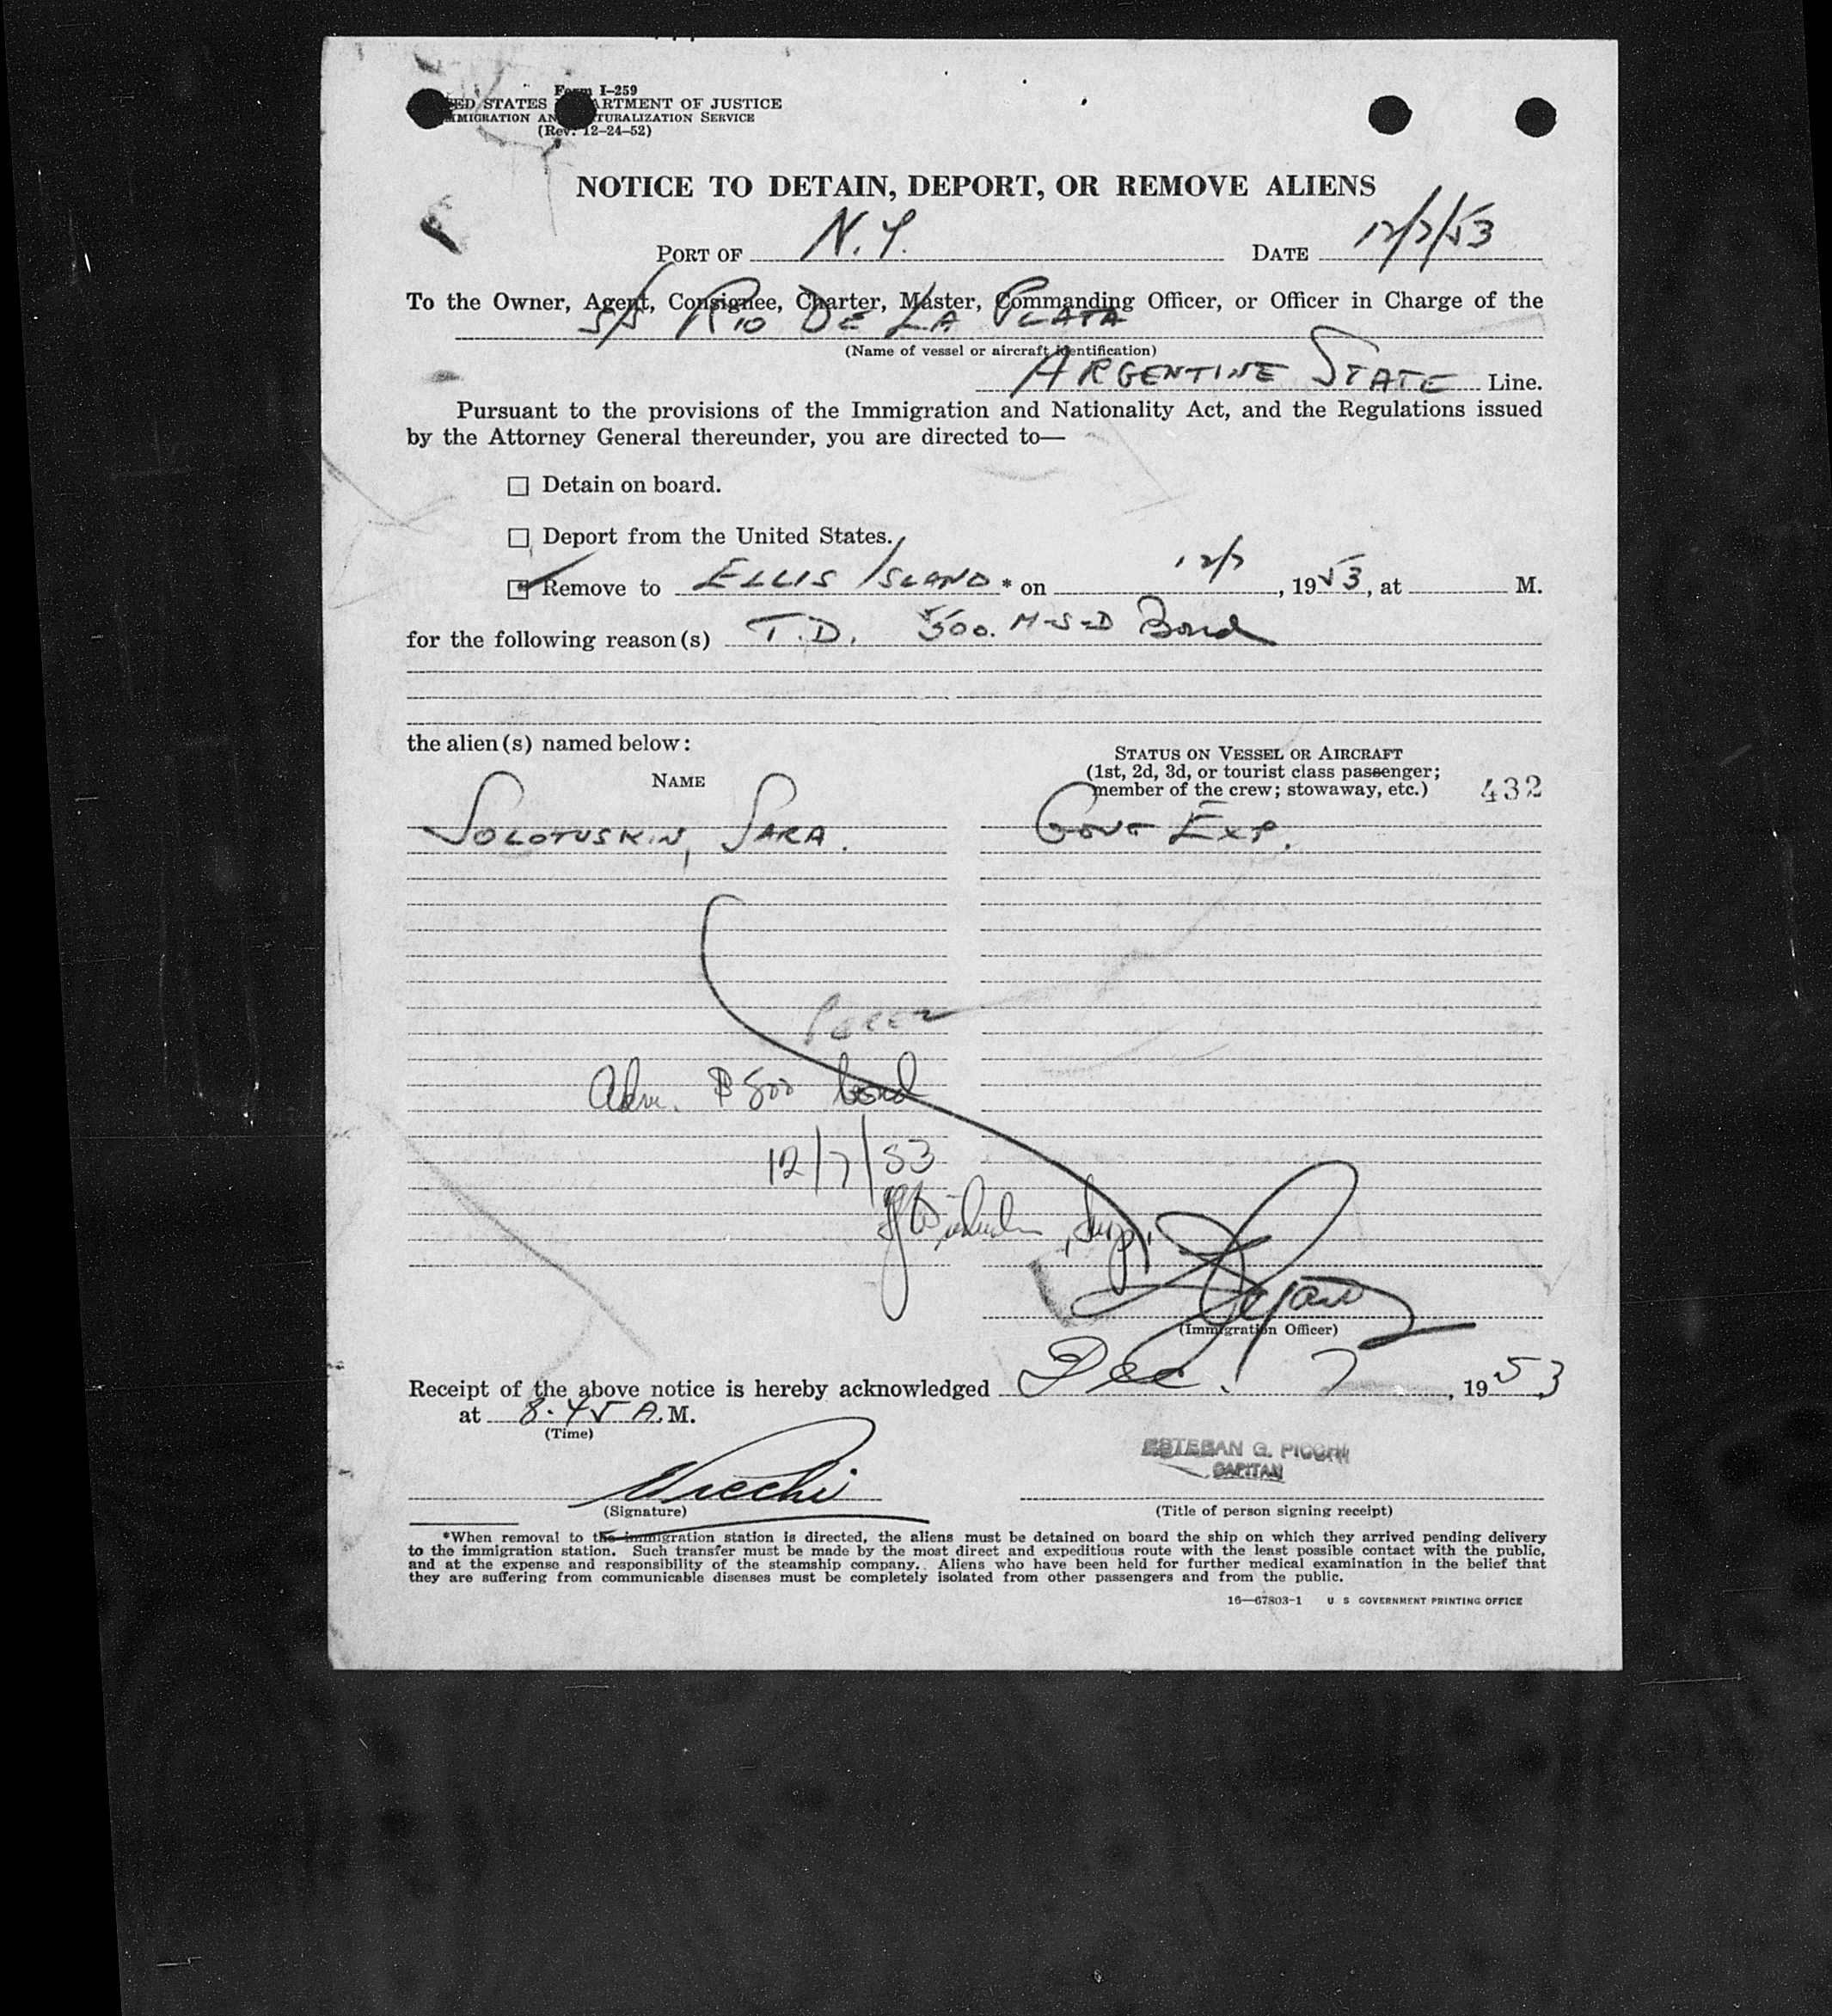 Form I-259
ED STATES ARTMENT OF JUSTICE
MMIGRATION AN TURALIZATION SERVICE
(Rev. 12-24-52)
NOTICE TO DETAIN, DEPORT, OR REMOVE ALIENS
PORT OF N.Y. DATE 12/7/53
To the Owner, Agent, Consignee, Charter, Master, Commanding Officer, or Officer in Charge of the
S/S RIO DE LA PLATA
(Name of vessel or aircraft identification)
ARGENTINE STATE Line.
Pursuant to the provisions of the Immigration and Nationality Act, and the Regulations issued
by the Attorney General thereunder, you are directed to—
☐ Detain on board.
☐ Deport from the United States.
☑ Remove to ELLIS ISLAND * on 12/7, 1953, at M.
for the following reason(s) T.D. 500. M-S-D Bond
the alien(s) named below:
NAME
STATUS ON VESSEL OR AIRCRAFT
(1st, 2d, 3d, or tourist class passenger;
member of the crew; stowaway, etc.)
432
SOLOTUSKIN, SARA. GOVT EXP.
Perez
Adm. $500 bond
12/7/53
, Insp.
(Immigration Officer)
Receipt of the above notice is hereby acknowledged Dec. 7, 1953
at 8.45 A.M.
(Time)
ESTEBAN G. PICCHI
CAPITAN
Picchi
(Signature)
(Title of person signing receipt)
*When removal to the immigration station is directed, the aliens must be detained on board the ship on which they arrived pending delivery
to the immigration station. Such transfer must be made by the most direct and expeditious route with the least possible contact with the public,
and at the expense and responsibility of the steamship company. Aliens who have been held for further medical examination in the belief that
they are suffering from communicable diseases must be completely isolated from other passengers and from the public.
16—67803-1 U S GOVERNMENT PRINTING OFFICE